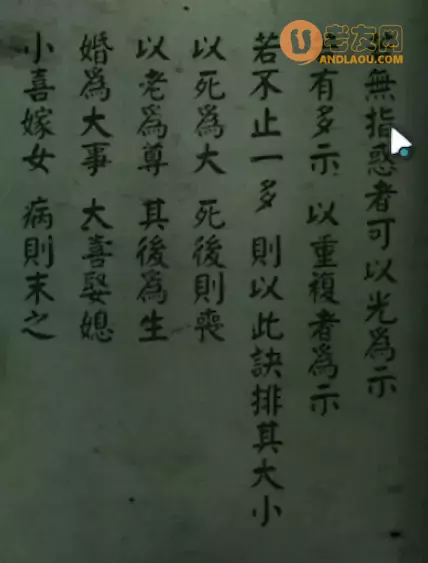 老友网
ANDLAOU.COM
無指惑者可以光為示
有多示 以重複者為示
若不止一多 則以此訣排其大小
以死為大 死後則喪
以老為尊 其後為生
婚為大事 大喜娶媳
小喜嫁女 病則末之